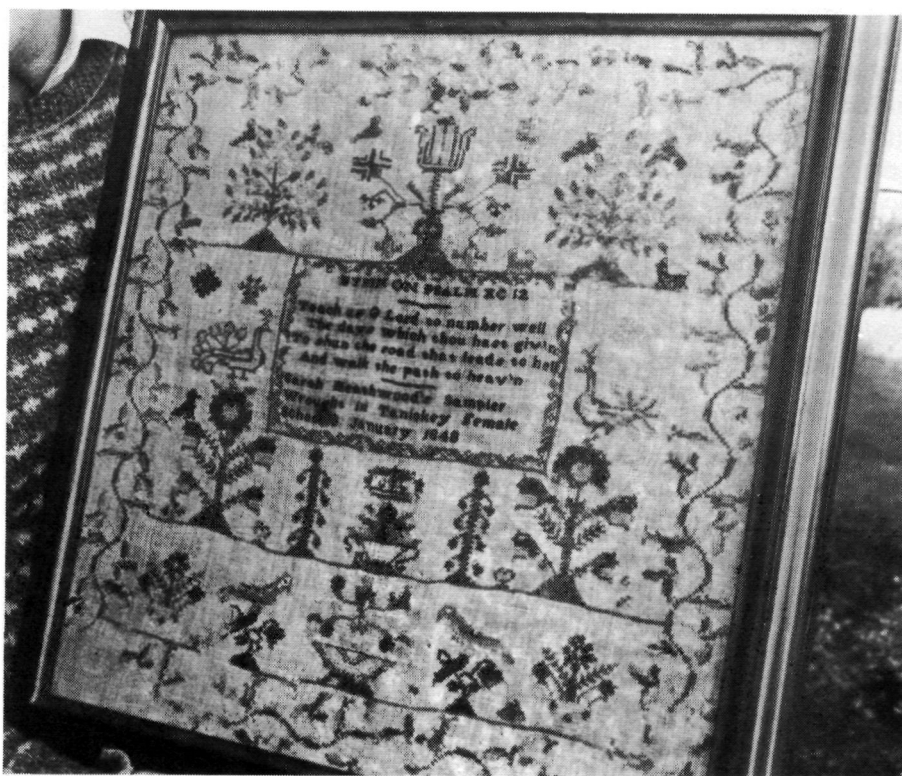 HYMN ON PSALM XC 12
Teach us O Lord to number well
The days which thou hast giv'n
To shun the road that leads to hell
And walk the path to heav'n
Sarah Sampler
Wrought in Taniokey Female
School January 1848